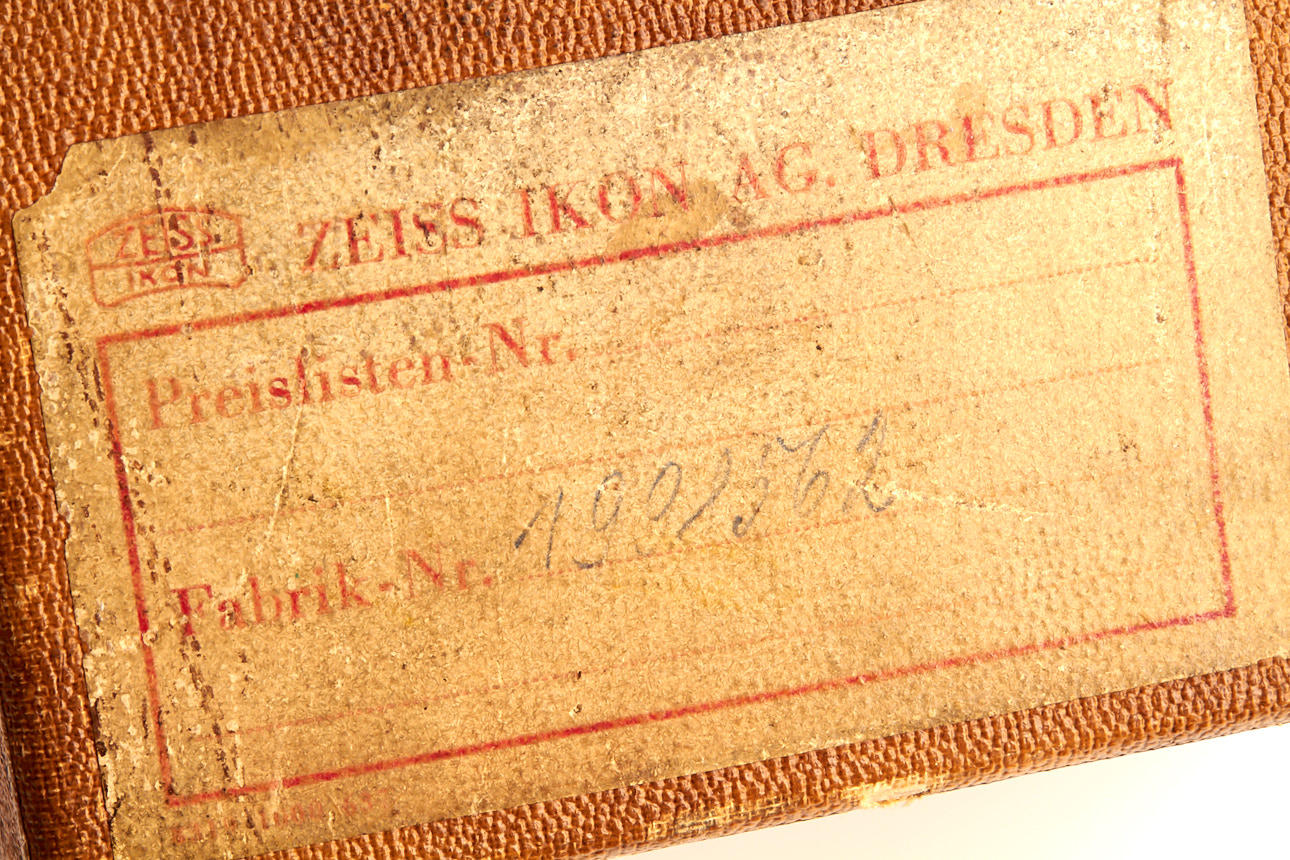 ZEISS
IKON
ZEISS IKON AG. DRESDEN
Preislisten-Nr.
Fabrik-Nr.